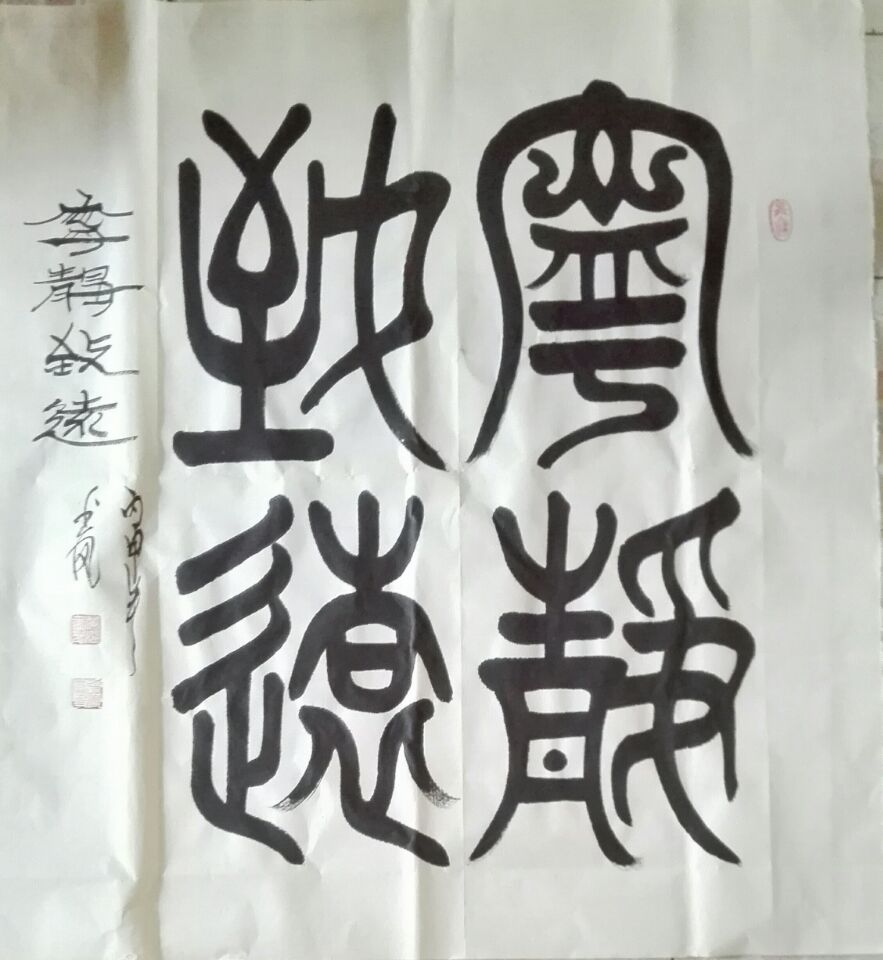 寧靜
致遠
寧靜致遠
丙申年